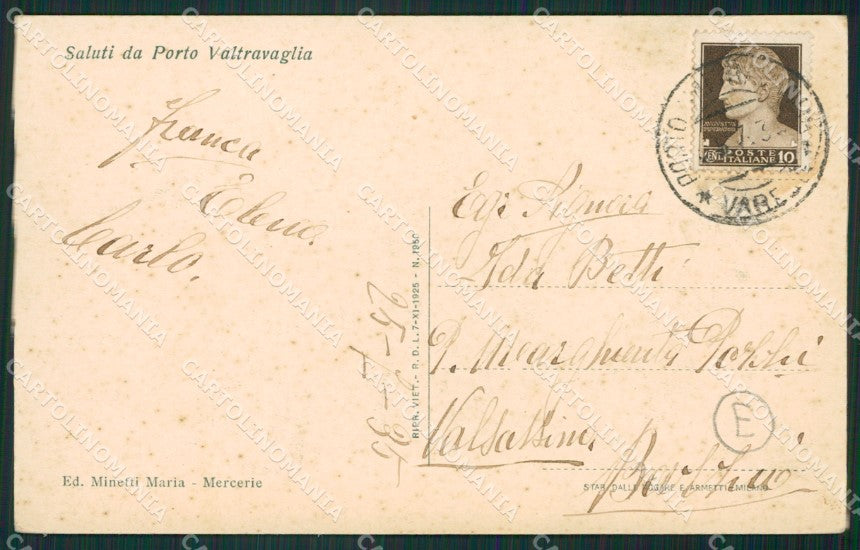 Saluti da Porto Valtravaglia
Franca
Elena
Carlo.
Ed. Minetti Maria - Mercerie
RIPR. VIET. - R. D. L. 7-XI-1925 - N. 1950
POSTE
ITALIANE 10
PORTO
VARE
Egr. Signora
Ida Betti
P.
Valsassina
E
STAB. DALLE NOGARE E ARMETTI - MILANO
CARTOLINOMANIA